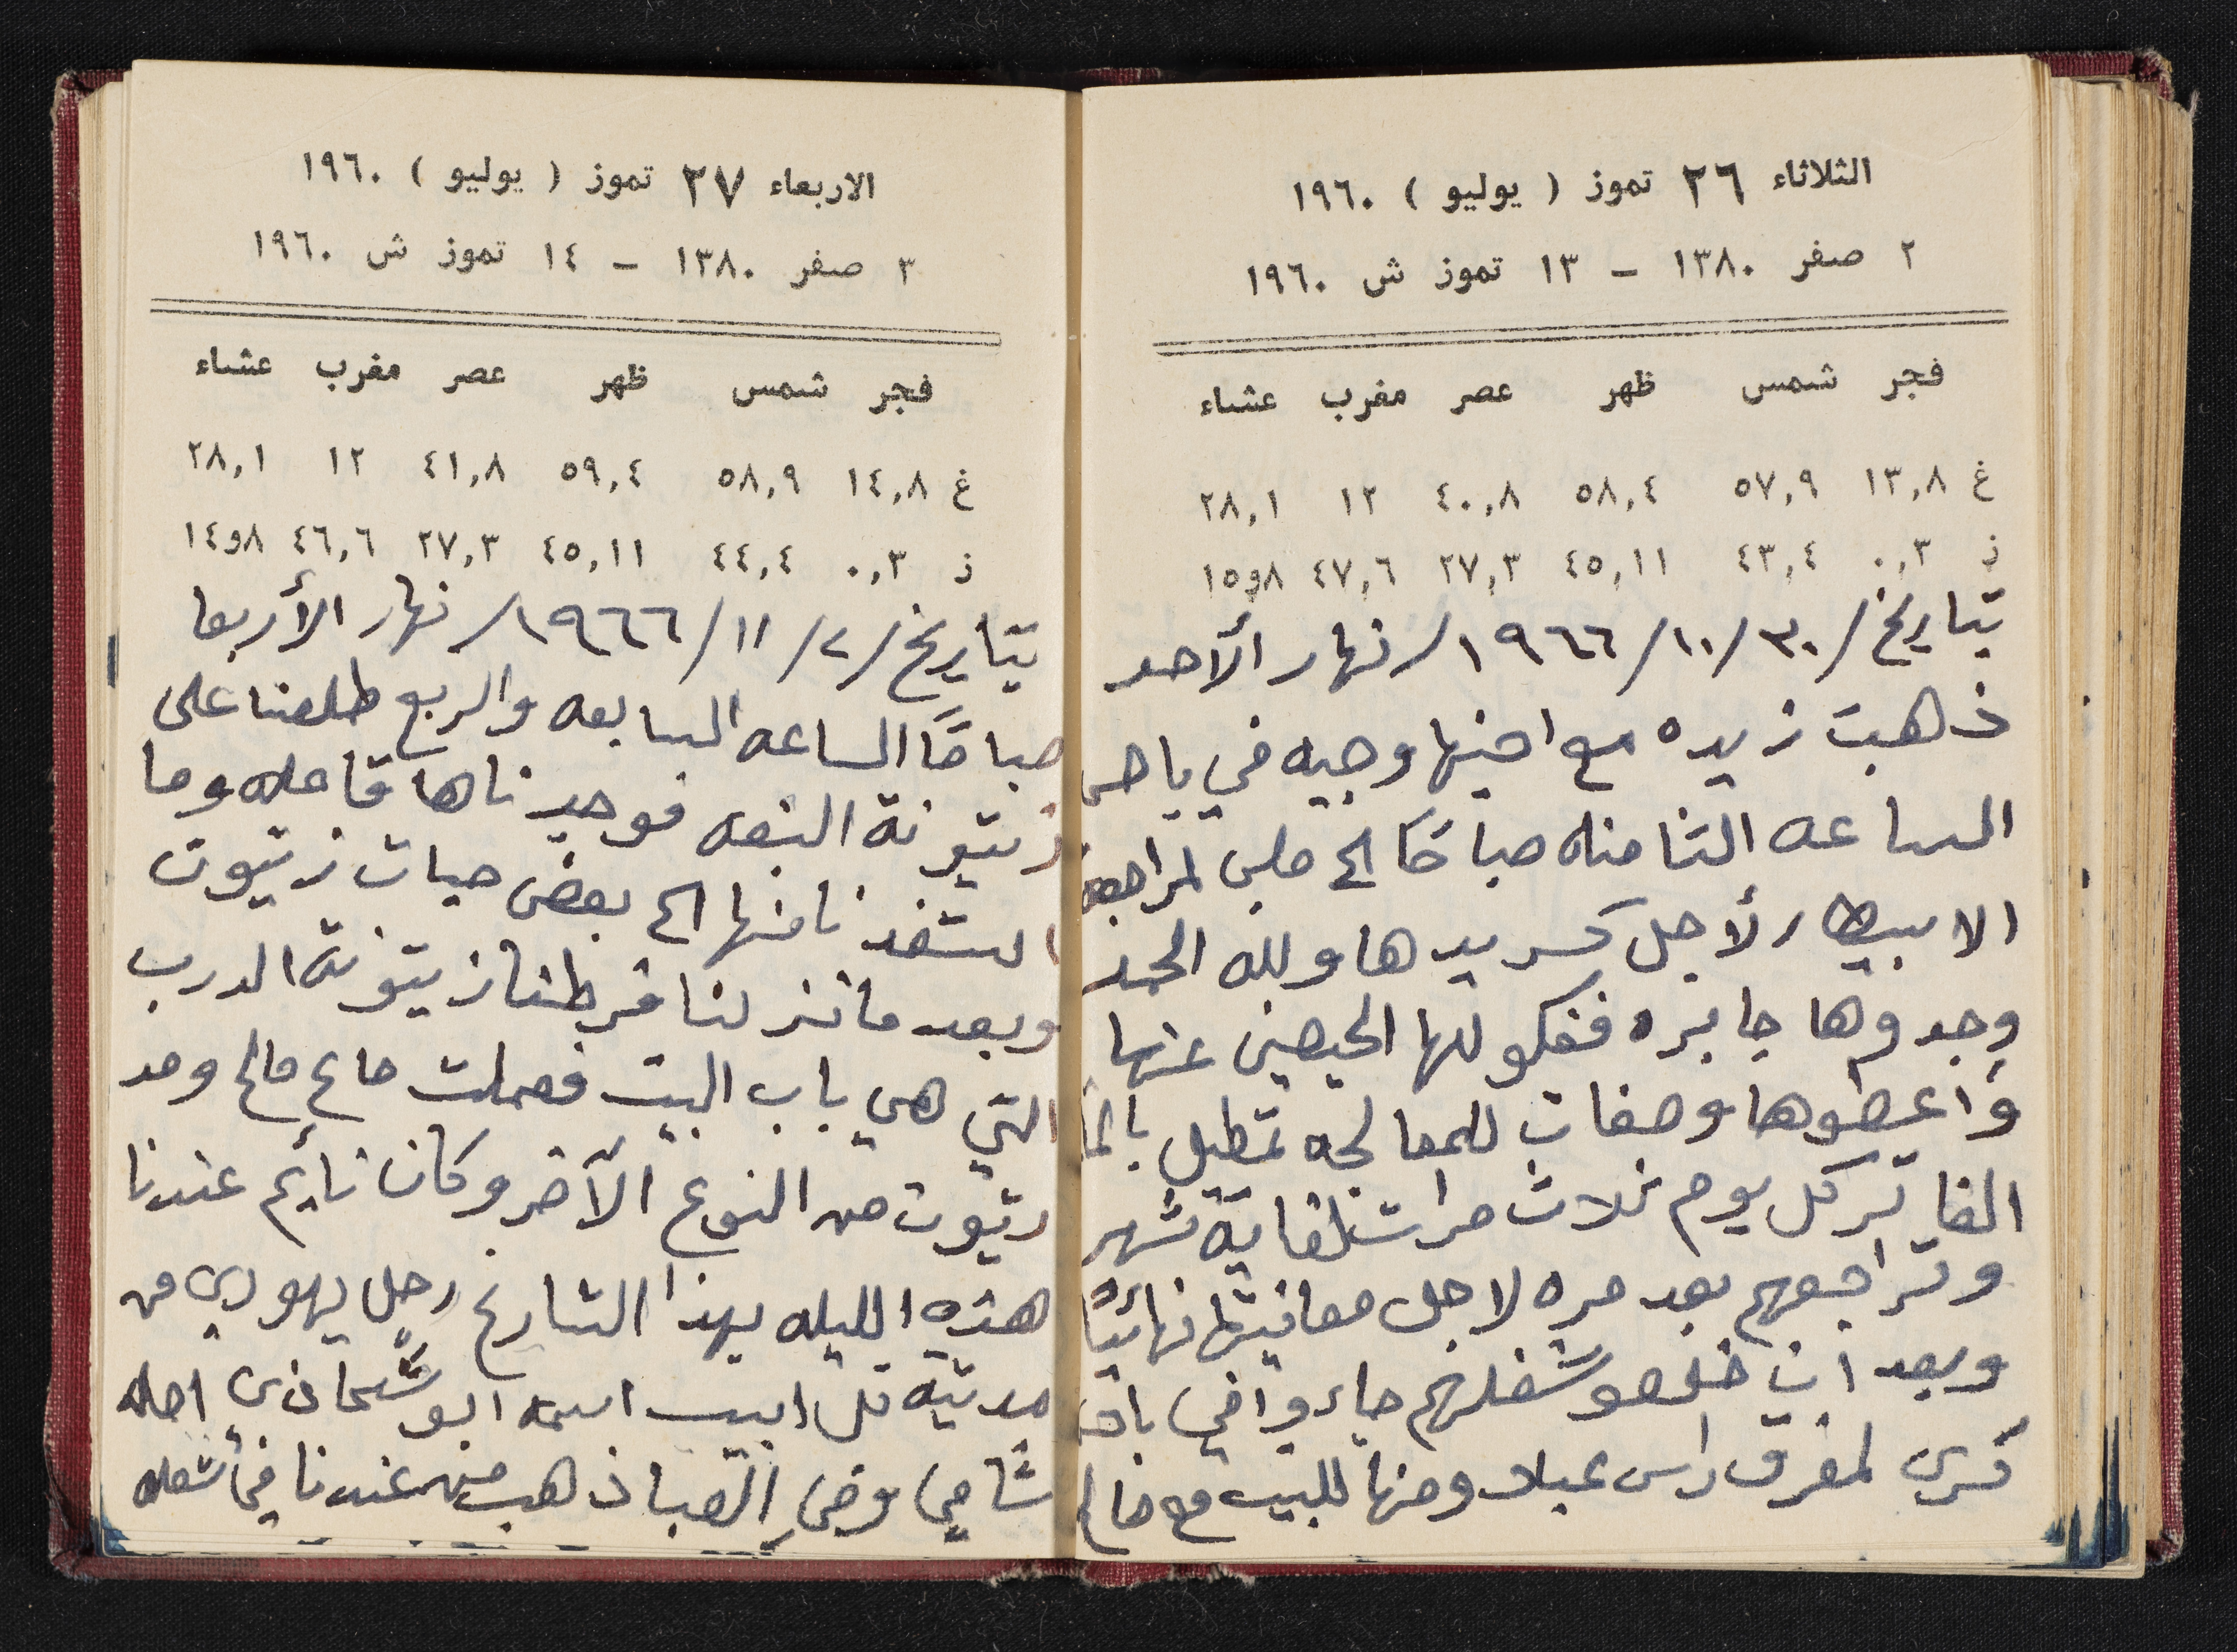 الثلاثاء ٢٦ تموز ( يوليو ) ١٩٦٠
٢ صفر ١٣٨٠ – ١٣ تموز ش ١٩٦٠
فجر شمس ظهر عصر مغرب عشاء
غ ١٣,٨ ٥٧,٩ ٥٨,٤ ٤٠,٨ ١٢ ٢٨,١
ز ٠,٣ ٤٣,٤ ٤٥,١١ ٢٧,٣ ٤٧,٦ ٨و١٥
بتاريخ /٣٠ /١٠ /١٩٦٦/ نهار الأحد
ذهبت زيده مع اخيها وجيه في باص
الساعه الثامنه صباحًا الى لمراجعة
الاسبيطار لأجل كسر يدها ولله الحمد
وجدوها جابره ففكو لها الجبصين عنها
وأعطوها وصفات للمعالجه تمطيل بالماء
الفاتر كل يوم ثلاث مرات لغاية شهر
وتراجعهم بعد مره لاجل معاينتها نهائيًا
وبعد ان خلصو شغلهم جاءوا في باص
كرى لمفرق راس علا ومنها للبيت مع
الاربعاء ٢٧ تموز ( يوليو ) ١٩٦٠
٣ صفر ١٣٨٠ – ١٤ تموز ش ١٩٦٠
فجر شمس ظهر عصر مغرب عشاء
غ ١٤,٨ ٥٨,٩ ٥٩,٤ ٤١,٨ ١٢ ٢٨,١
ز ٠,٣ ٤٤,٤ ٤٥,١١ ٢٧,٣ ٤٦,٦ ٨و١٤
بتاريخ /٢ /١١ /١٩٦٦/ نهار الأربعا
صباحًا الساعه السابعه والربع طلعنا على
زيتونة النبعه فوجدناها قاحله وما
استفدنا منها الى بعض حبات زيتون
وبعد ما نزلنا فرطنا زيتونة الدرب
التي هي باب البيت فعملت صاع مالح ومد
زيتون من النوع الآخر وكان نايم عندنا
هذه الليله بهذا التاريخ رجل يهودي من
مدينة تل ابيب اسمه ابو اصله
شامي وفي الصبا ذهب من عندنا في